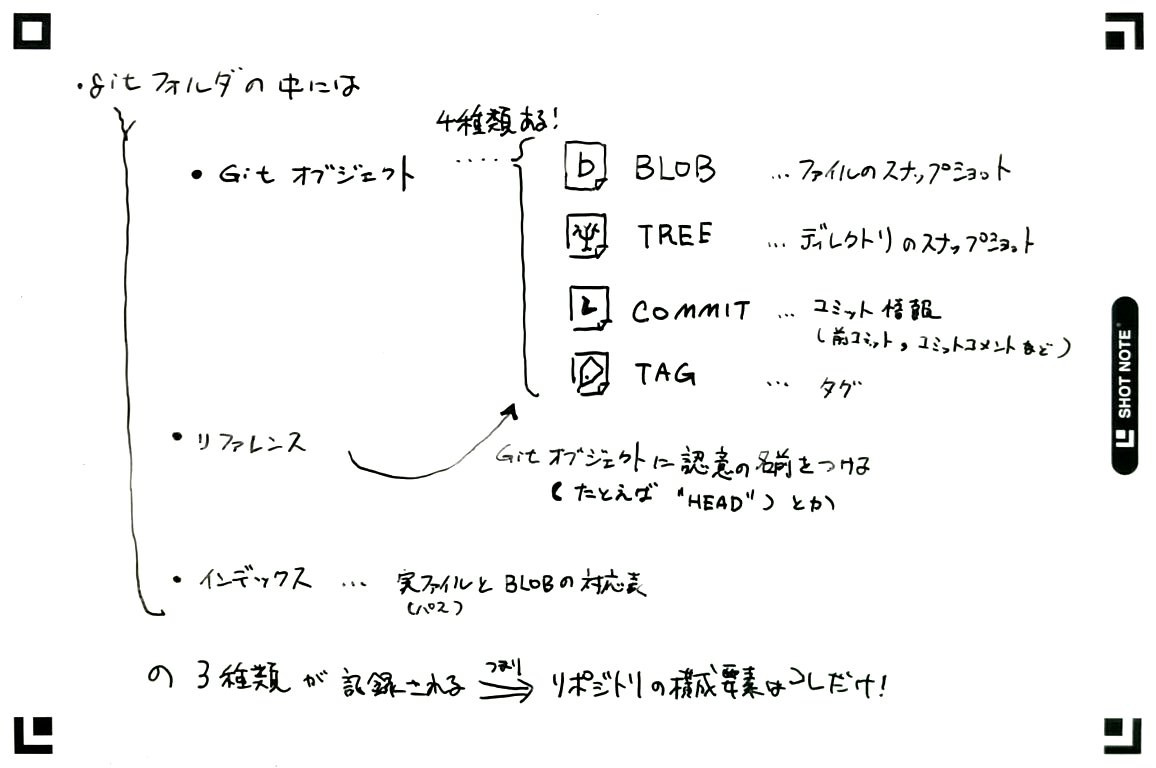 .gitフォルダの中には
4種類ある!
• Git オブジェクト ‥‥‥
b BLOB … ファイルのスナップショット
TREE … ディレクトリのスナップショット
COMMIT … コミット情報
(前コミット,コミットコメントなど)
TAG … タグ
• リファレンス
Git オブジェクトに認意の名前をつける
(たとえば "HEAD") とか
• インデックス … 実ファイルとBLOBの対応表
(パス)
の 3種類が記録される つまり リポジトリの構成要素はコレだけ!
SHOT NOTE